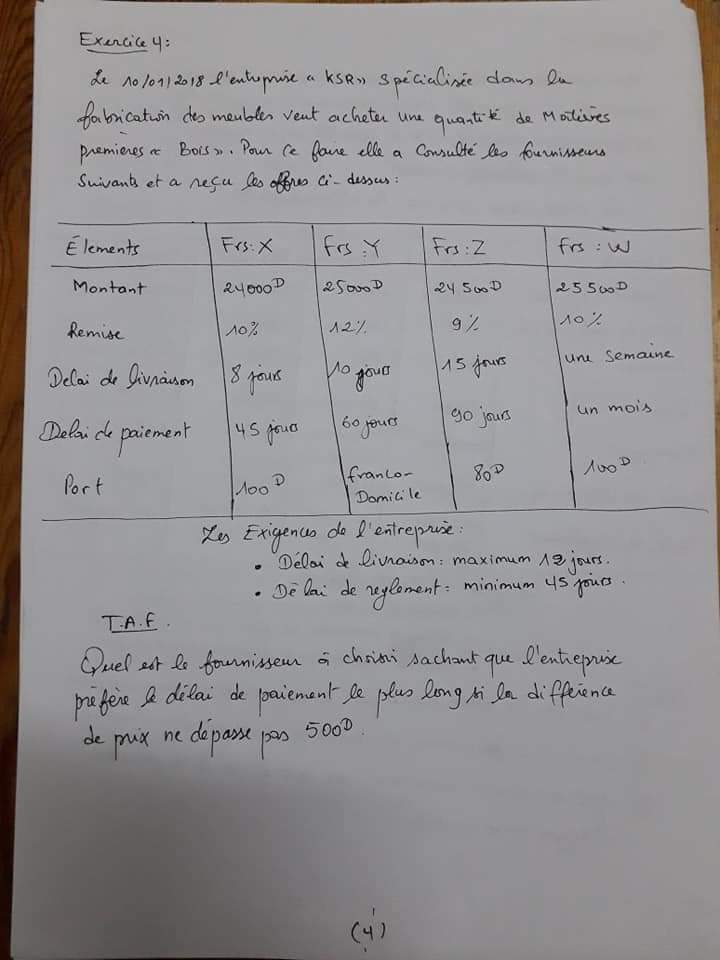 Exercice 4:
Le 10/01/2018 l'entreprise « KSR» Spécialisée dans la
fabrication des meubles veut acheter une quantité de Matières
premières « Bois». Pour ce faire elle a Consulté les fournisseurs
Suivants et a reçu les offres ci-dessus:
Élements Frs: X Frs: Y Frs: Z Frs: W
Montant 24000D 25000D 24500D 25500D
Remise 10% 12% 9% 10%
Delai de livraison 8 jours 10 jours 15 jours une semaine
Delai de paiement 45 jours 60 jours 90 jours un mois
Port 100D franco- 80D 100D
Domicile
Les Exigences de l'entreprise:
• Délai de livraison: maximum jours.
• Délai de reglement: minimum 45 jours.
T.A.F.
Quel est le fournisseur à choisi sachant que l'entreprise
préfère le délai de paiement le plus long si la différence
de prix ne dépasse pas 500D.
(4)